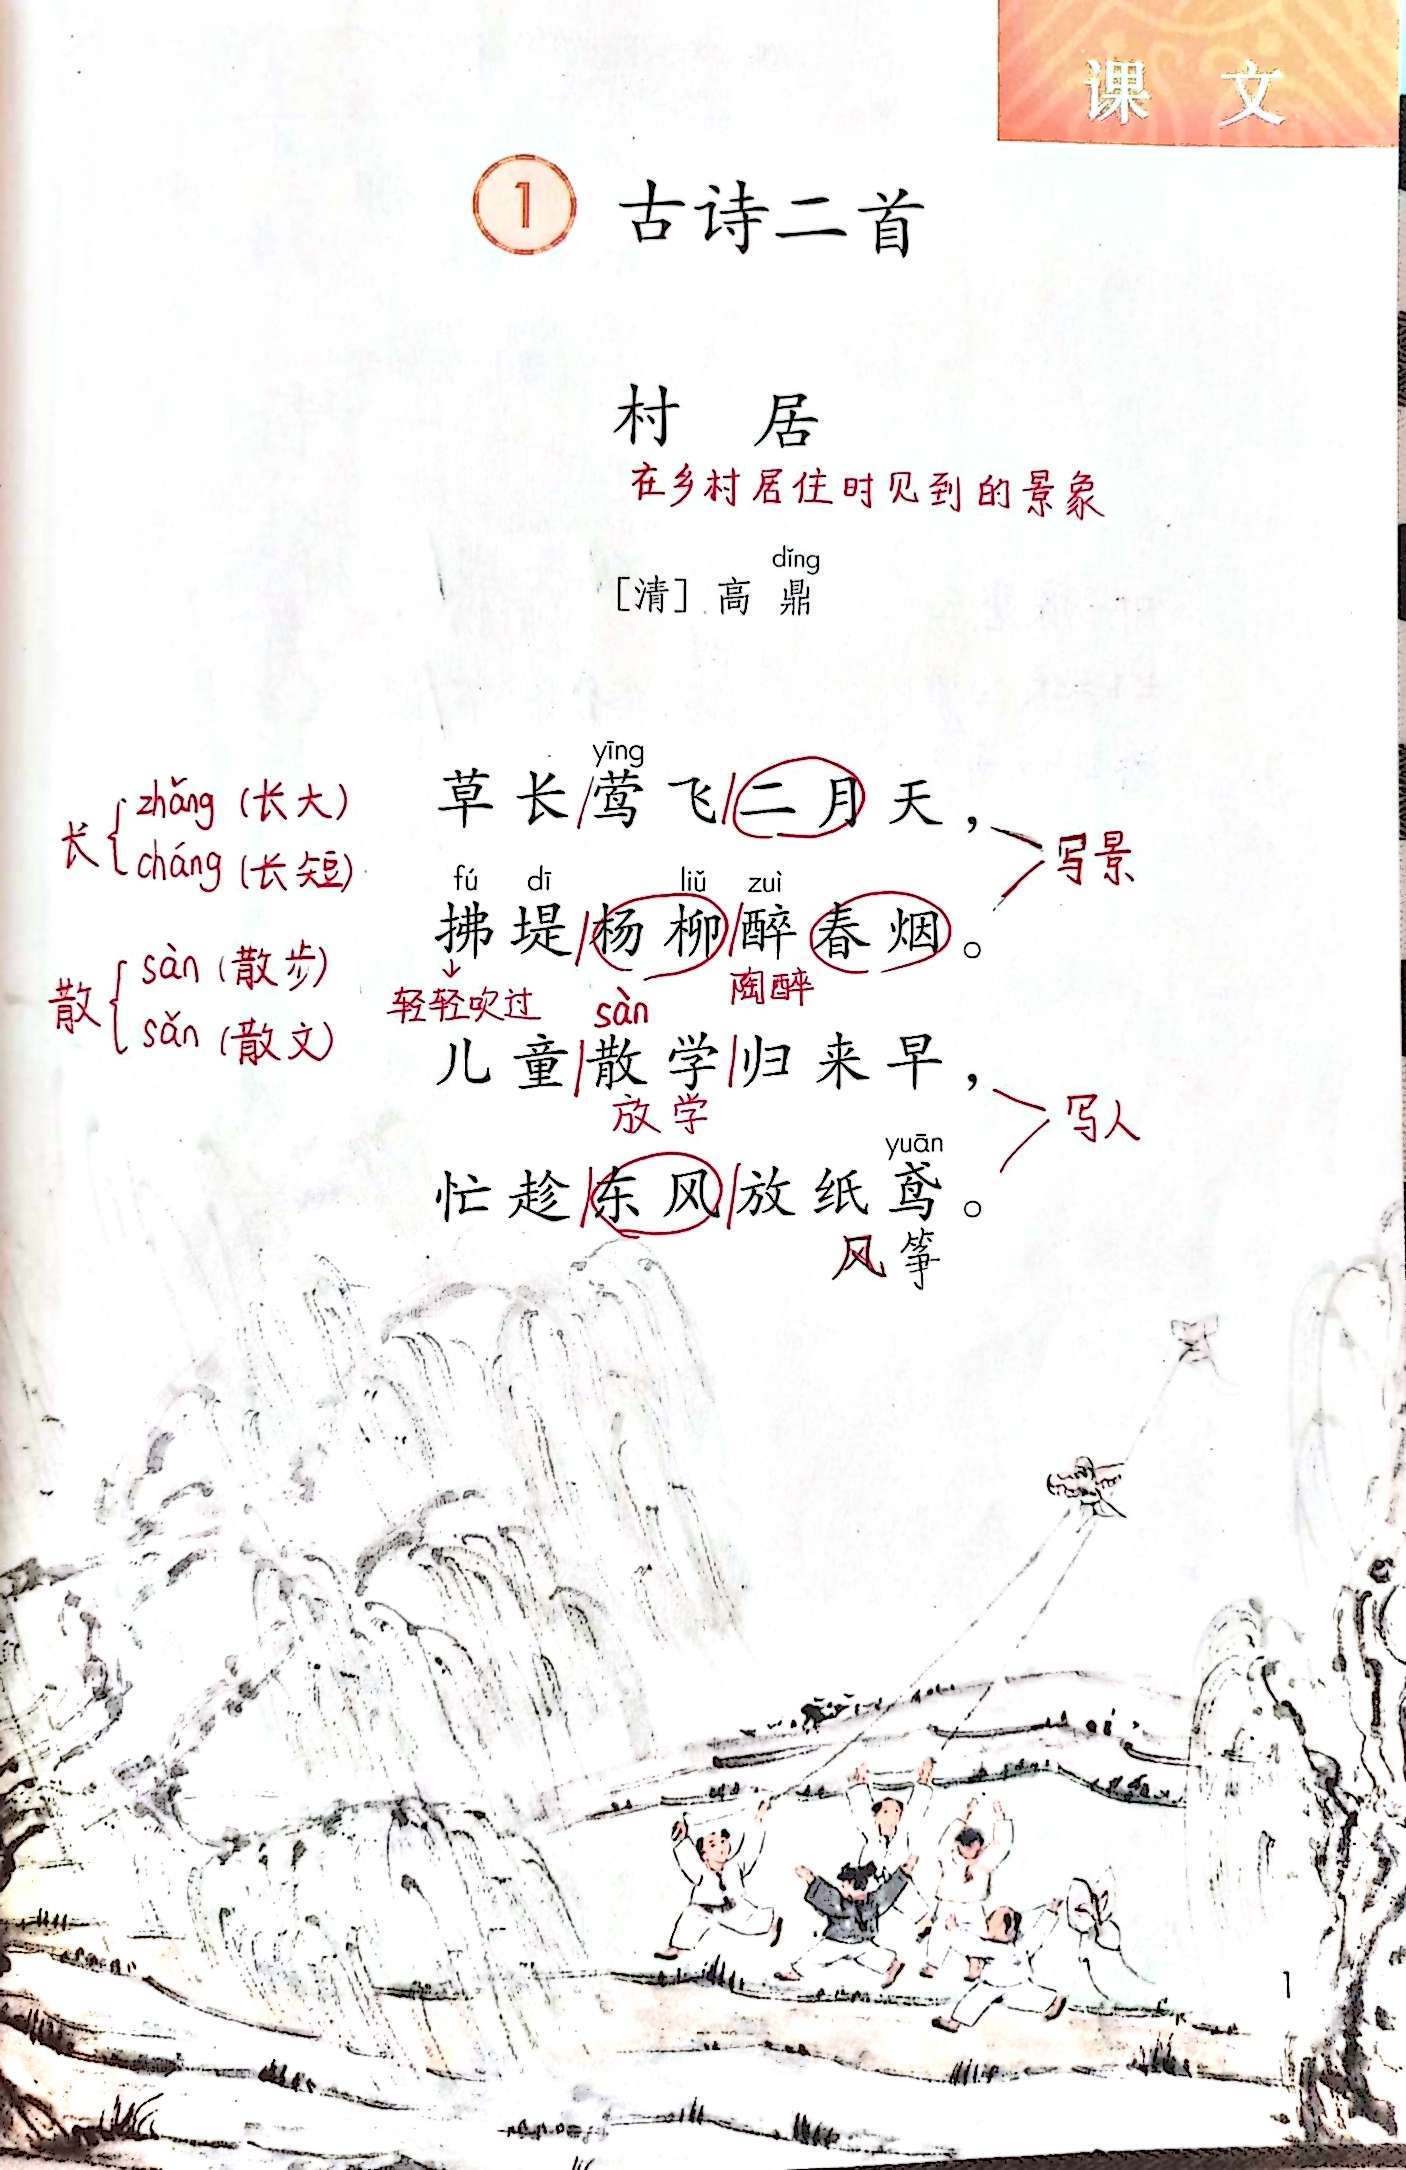 课 文
1 古诗二首
村 居
在乡村居住时见到的景象
dǐng
[清] 高 鼎
yīng
草长/莺飞/二月天，
长 { zhǎng (长大)
cháng (长短)
写景
fú dī liǔ zuì
拂堤/杨柳/醉春烟。
↓
轻轻吹过
陶醉
散 { sàn (散步)
sǎn (散文)
sàn
儿童/散学/归来早，
放学
写人
yuān
忙趁/东风/放纸鸢。
风筝
1